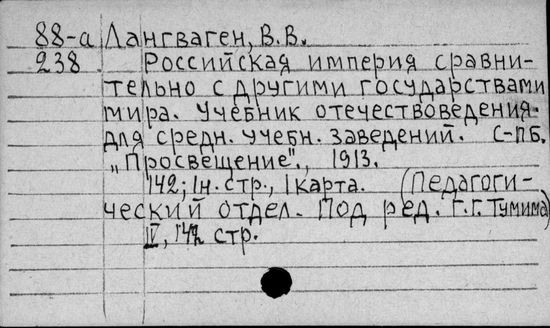 88-а Лангваген, В.В.
238 Российская империя сравни-
тельно с другими государствами
мира. Учебник отечествоведения.
для средн. учебн. заведений. С-Пб.
„Просвещение"., 1913.
142; 1н. стр., 1 карта. (Педагоги-
ческий отдел. Под ред. Г.Г. Тумима)
IV, 142 стр.